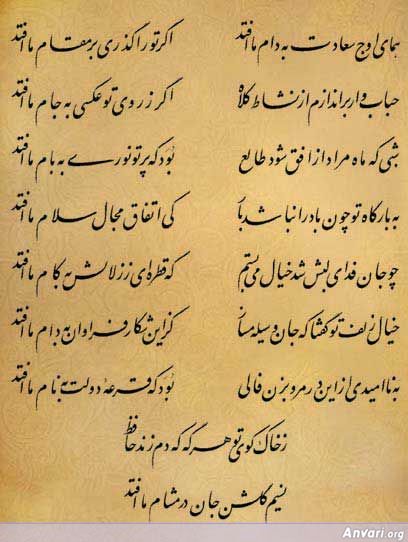 همای اوج سعادت به دام ما افتد اگر تو را گذری بر مقام ما افتد
حباب وار براندازم از نشاط کلاه اگر ز روی تو عکسی به جام ما افتد
شبی که ماه مراد از افق شود طالع بود که پرتو نوری به بام ما افتد
به بارگاه تو چون باد را نباشد بار کی اتفاق مجال سلام ما افتد
چو جان فدای لبش شد خیال می بستم که قطره ای ز زلالش به کام ما افتد
خیال زلف تو گفتا که جان وسیله مساز کزین شکار فراوان به دام ما افتد
به ناامیدی از این در مرو بزن فالی بود که قرعه دولت به نام ما افتد
ز خاک کوی تو هر گه که دم زند حافظ
نسیم گلشن جان در مشام ما افتد
Anvari.org